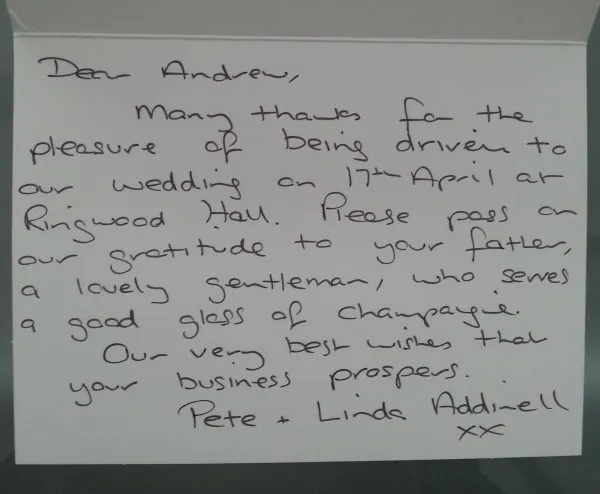 Dear Andrew,
Many thanks for the
pleasure of being driven to
our wedding on 17th April at
Ringwood Hall. Please pass on
our gratitude to your father,
a lovely gentleman, who serves
a good glass of champagne.
Our very best wishes that
your business prospers.
Pete + Linda Addinell
xx